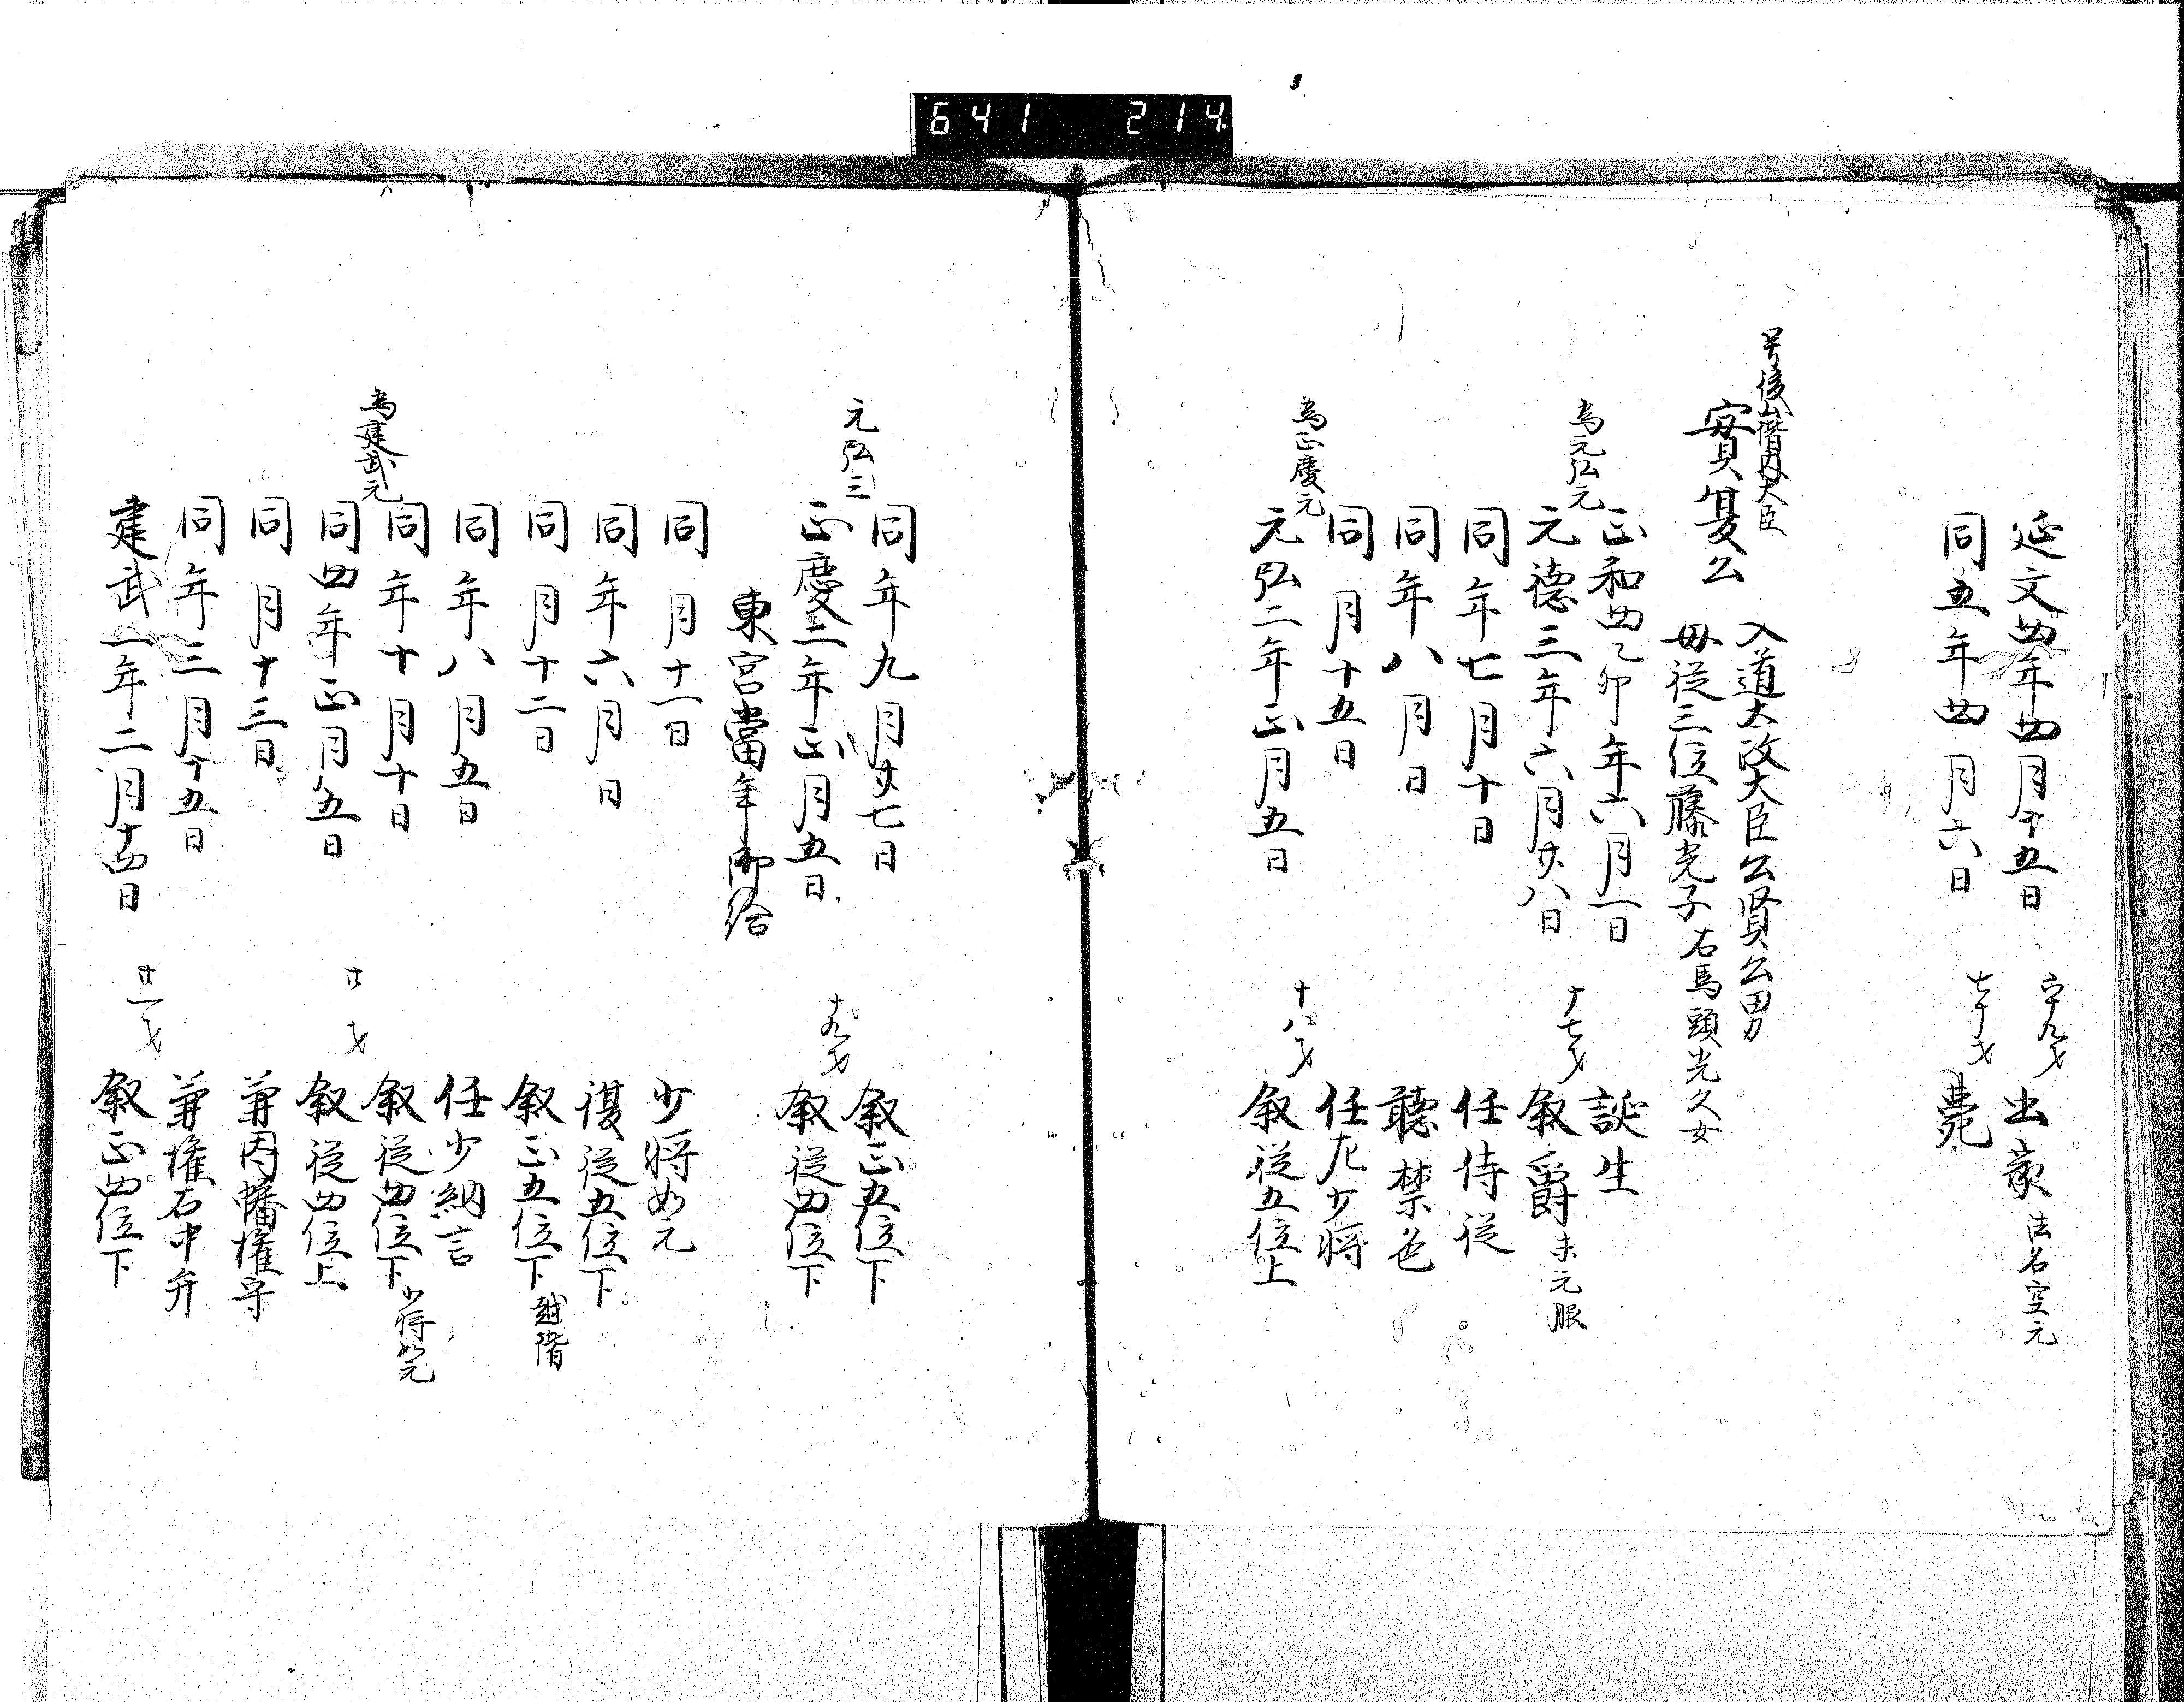 641 214
延文四年四月十五日 六十九才 出家 法名空元
同五年四月六日 七十才 薨
号後山階内大臣
實夏公 入道太政大臣公賢公男
母従三位藤光子 右馬頭光久女
正和四乙卯年六月一日 誕生
為元弘元
元徳三年六月廿八日 十七才 叙爵 未元服
同年七月十日 任侍従
同年八月日 聴禁色
同月十五日 任左少将
為正慶元
元弘二年正月五日 十八才 叙従五位上
同年九月廿七日 叙正五位下
元弘三
正慶二年正月五日 十九才 叙従四位下
東宮當年御給
同月十一日 少将如元
同年六月日 復従五位下
同月十二日 叙正五位下 越階
同年八月五日 任少納言
同年十月十日 叙従四位下 少将如元
為建武元
同四年正月五日 廿才 叙従四位上
同月十三日 兼因幡権守
同年三月十五日 兼権右中弁
建武二年二月十四日 廿一才 叙正四位下